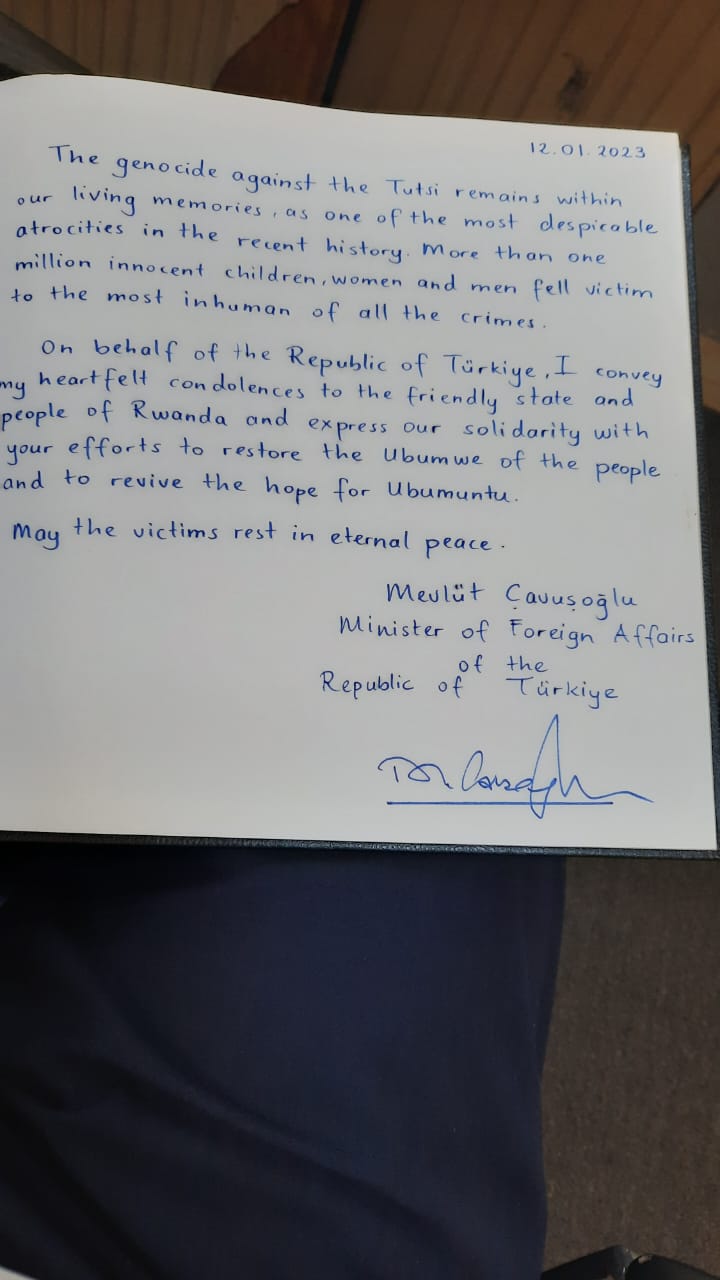 12.01.2023
The genocide against the Tutsi remains within
our living memories, as one of the most despicable
atrocities in the recent history. More than one
million innocent children, women and men fell victim
to the most inhuman of all the crimes.
On behalf of the Republic of Türkiye, I convey
my heartfelt condolences to the friendly state and
people of Rwanda and express our solidarity with
your efforts to restore the Ubumwe of the people
and to revive the hope for Ubumuntu.
May the victims rest in eternal peace.
Mevlüt Çavuşoğlu
Minister of Foreign Affairs
of the
Republic of Türkiye